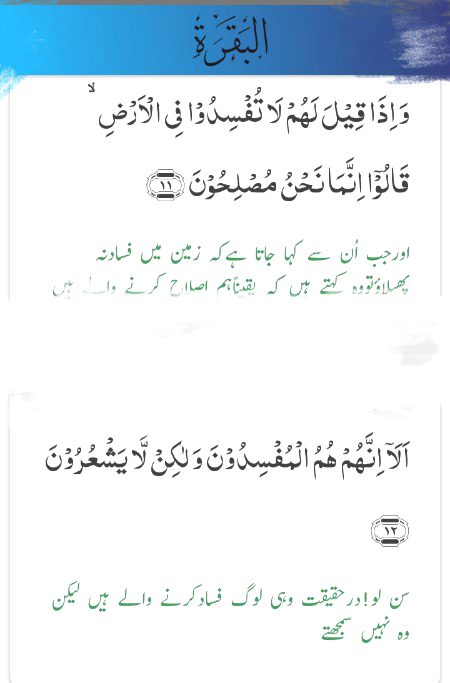 البَقَرَة
وَاِذَا قِيْلَ لَهُمْ لَا تُفْسِدُوْا فِى الْاَرْضِ ۙ
قَالُوْٓا اِنَّمَا نَحْنُ مُصْلِحُوْنَ ﴿۱۱﴾
اورجب اُن سے کہا جاتا ہےکہ زمین میں فسادنہ
پھیلاؤتووہ کہتے ہیں کہ یقیناًہم اصلاح کرنے والے ہیں
اَلَآ اِنَّهُمْ هُمُ الْمُفْسِدُوْنَ وَلٰكِنْ لَّا يَشْعُرُوْنَ
﴿۱۲﴾
سن لو!درحقیقت وہی لوگ فسادکرنے والے ہیں لیکن
وہ نہیں سمجھتے